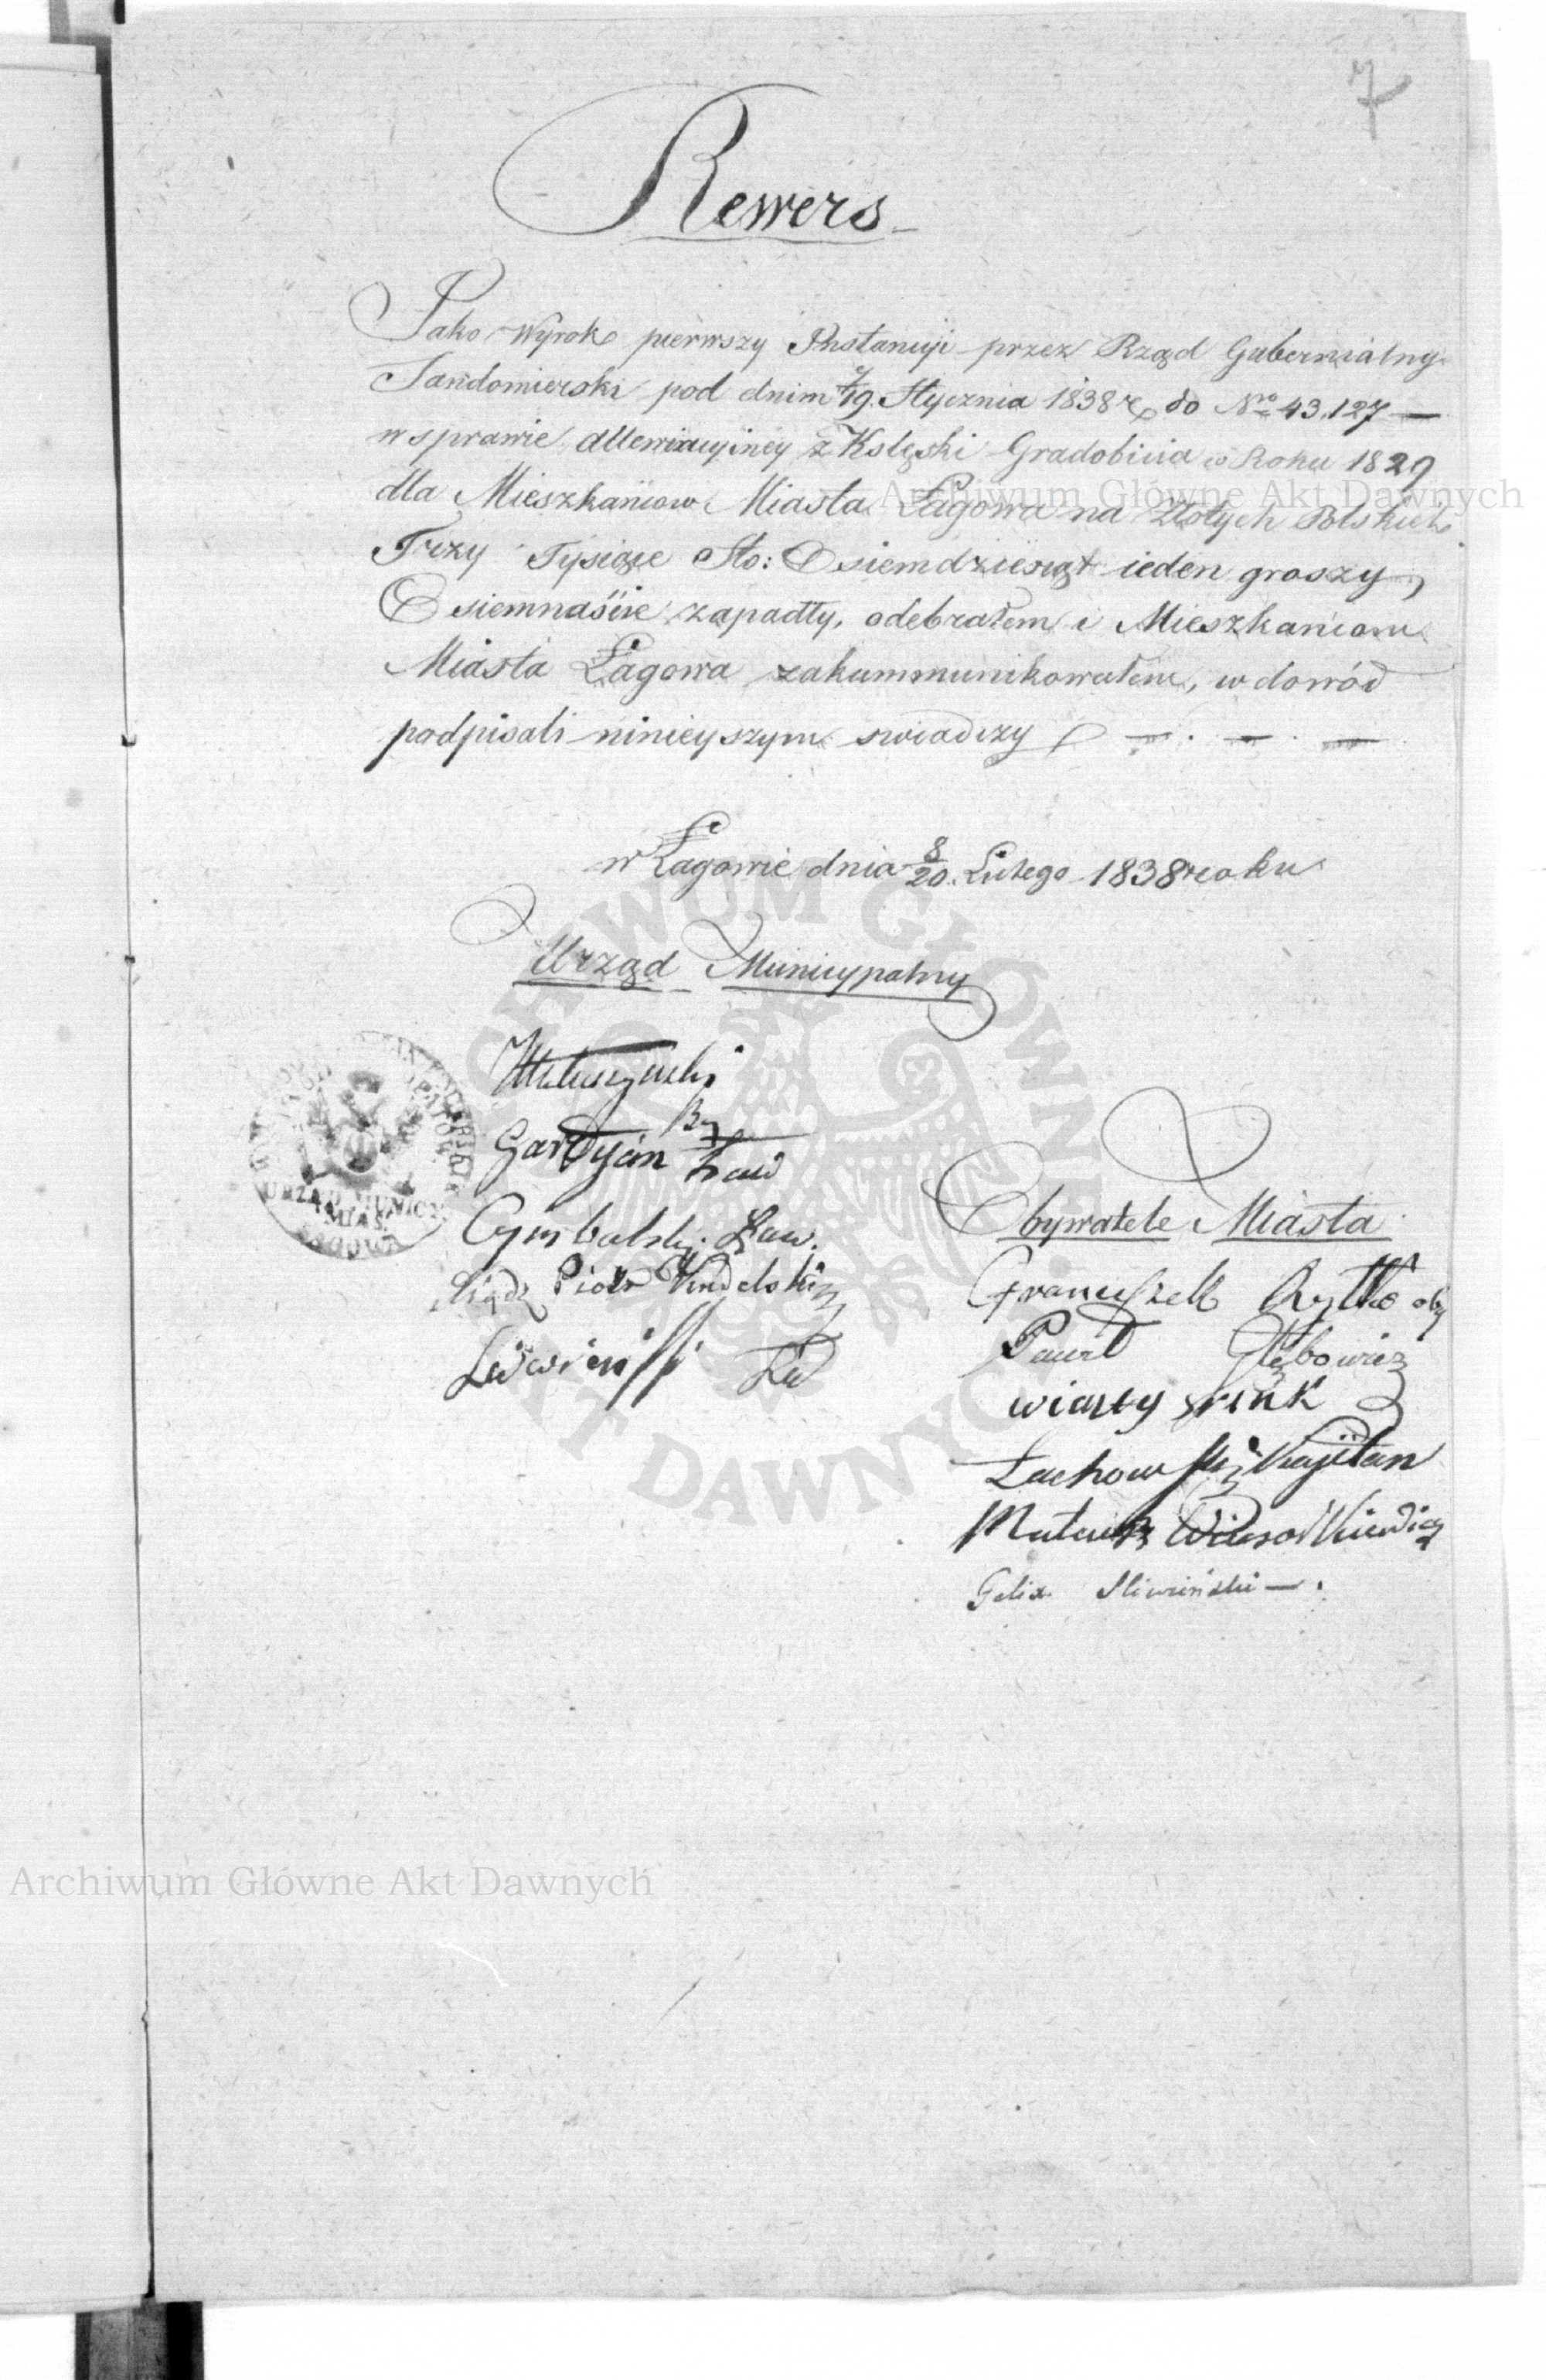 7
Rewers
Jako Wyrok pierwszy Instancyi przez Rząd Gubernialny
Sandomierski pod dnim 7/19 Stycznia 1838 r do Nro 43.127 —
w sprawie allewiacyiney z Kslęski Gradobicia w Roku 1829
dla Mieszkańcow Miasta Łagowa na Złotych Polskich
Trzy Tysiące Sto: Osiemdziesiąt ieden groszy
Osiemnaście zapadły, odebrałem i Mieszkańcom
Miasta Łagowa zakummunikowałem, w dowód
podpisali ninieyszym swiadczy — . — . —
w Łagowie dnia 8/20 Lutego 1838 roku
Urząd Municypalny
Gardyan Ław
Cymbalski Ław.
Piotr
Obywatele Miasta
Franciszek oby
Paweł Głębowicz
Lachowski Kajetan
Mateusz
Felix Sliwiński — .
URZĄD MUNICY.
MIAS.
ŁAGOWA
Archiwum Główne Akt Dawnych
ARCHIWUM GŁÓWNE AKT DAWNYCH
Archiwum Główne Akt Dawnych